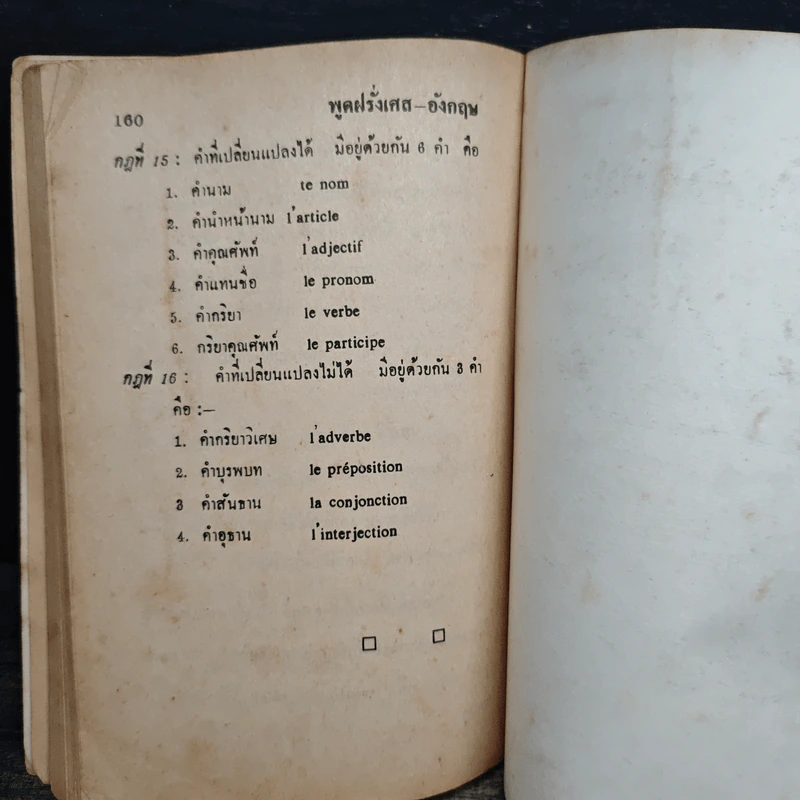 160
พูดฝรั่งเศส–อังกฤษ
กฎที่ 15 : คำที่เปลี่ยนแปลงได้ มีอยู่ด้วยกัน 6 คำ คือ
1. คำนาม te nom
2. คำนำหน้านาม l'article
3. คำคุณศัพท์ l'adjectif
4. คำแทนชื่อ le pronom
5. คำกริยา le verbe
6. กริยาคุณศัพท์ le participe
กฎที่ 16 : คำที่เปลี่ยนแปลงไม่ได้ มีอยู่ด้วยกัน 3 คำ
คือ :—
1. คำกริยาวิเศษ l'adverbe
2. คำบุรพบท le préposition
3 คำสันธาน la conjonction
4. คำอุธาน l'interjection